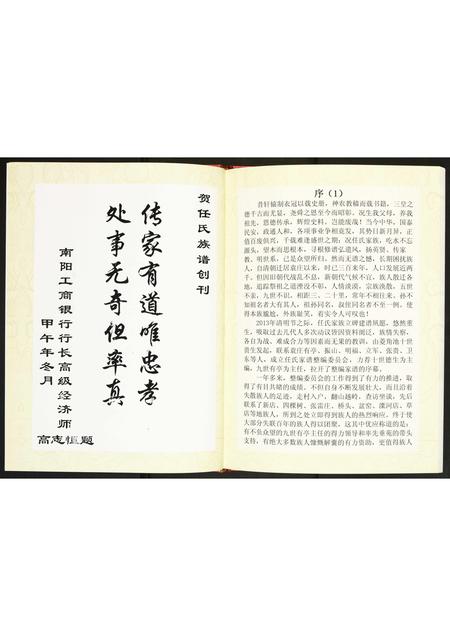 贺任氏族谱创刊
传家有道唯忠孝
处事无奇但率真
南阳工商银行行长高级经济师
甲午年冬月
高志恒题
序（1）
昔轩辕制衣冠以载史册，神农教稼而载书籍，三皇之
德千古而尤显，尧舜之恩至今而昭彰，况生我父母，养我
祖先，恩德传承，辉煌史料，岂能废哉！当今中华，国泰
民安，政通人和，各项事业争相竞发，其势日新月异，正
值百废俱兴，千载难逢盛世之期；况任氏家族，吃水不忘
源头，望木而思根本，寻根修谱弘道风，扬英贤、传家
教、明世系，已是众望所归。然而无谱之憾，长期困扰族
人，自清朝迁居袁庄以来，时已三百来年，人口发展近两
千。但因旧朝代战乱不息，新朝代气候不宜，族人散迁各
地，追踪祭祖之道湮没不彰，人情淡漠，宗族涣散，五世
不亲，九世不识，相距三、二十里，常年不相往来，孙不
知祖名者大有其人，祖孙同名，叔侄同名者不至一例，使
得本族尴尬，外族耻笑，着实令人可叹也！
2013年清明节之际，任氏家族立碑建谱夙愿，悠然重
生，吸取过去几代人多次动议皆因资料阙泛，族情失察，
各自为战、难成合力等因素而无果的教训，由菱角池十世
贵生发起，联系袁庄有亭、振山、明福、立军、张贵、卫
东等人，成立任氏家谱整编委员会，力荐十世德生为主
编，九世有亭为主任，拉开了整编家谱的序幕。
一年多来，整编委员会的工作得到了有力的推进，取
得了有目共睹的成绩。不但自身不断发展壮大，而且沿着
失散族人的足迹，走村入户，翻山越岭，查访坐谈，先后
联系了新店、四棵树、张雷庄、桥头、盆窑、潦河店、草
店等地族人，所到之处立即得到族人的热烈响应，终于使
大部分失联百年的族人得以团聚。这其中优应称道的是：
有不负众望的九世有亭主任的得力领导和率先垂范的带头
支持，有绝大多数族人慷慨解囊的有力资助，更值得族人